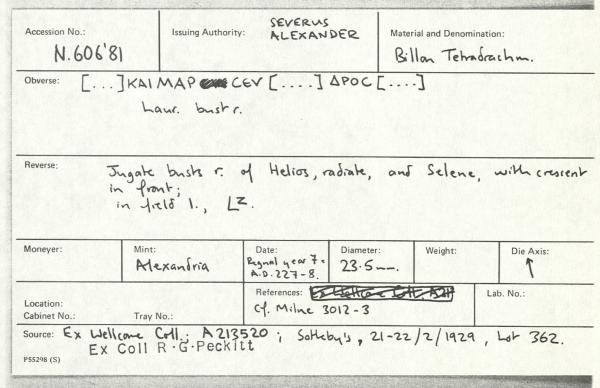 Accession No.:
N.606'81
Issuing Authority:
SEVERUS
ALEXANDER
Material and Denomination:
Billon Tetradrachm.
Obverse:
[...]ΚΑΙ ΜΑΡ CEV [....] ΔΡΟC [....]
Laur. bust r.
Reverse:
Jugate busts r. of Helios, radiate, and Selene, with crescent
in front;
in field l., LZ.
Moneyer:
Mint:
Alexandria
Date:
Regnal year 7 =
A.D. 227-8.
Diameter:
23.5mm.
Weight:
Die Axis:
↑
Location:
Cabinet No.:
Tray No.:
References: Ex Wellcome Coll. A21
Cf. Milne 3012-3
Lab. No.:
Source: Ex Wellcome Coll.: A213520 ; Sotheby's, 21-22/2/1929, Lot 362.
Ex Coll R.G.Peckitt
P55298 (S)